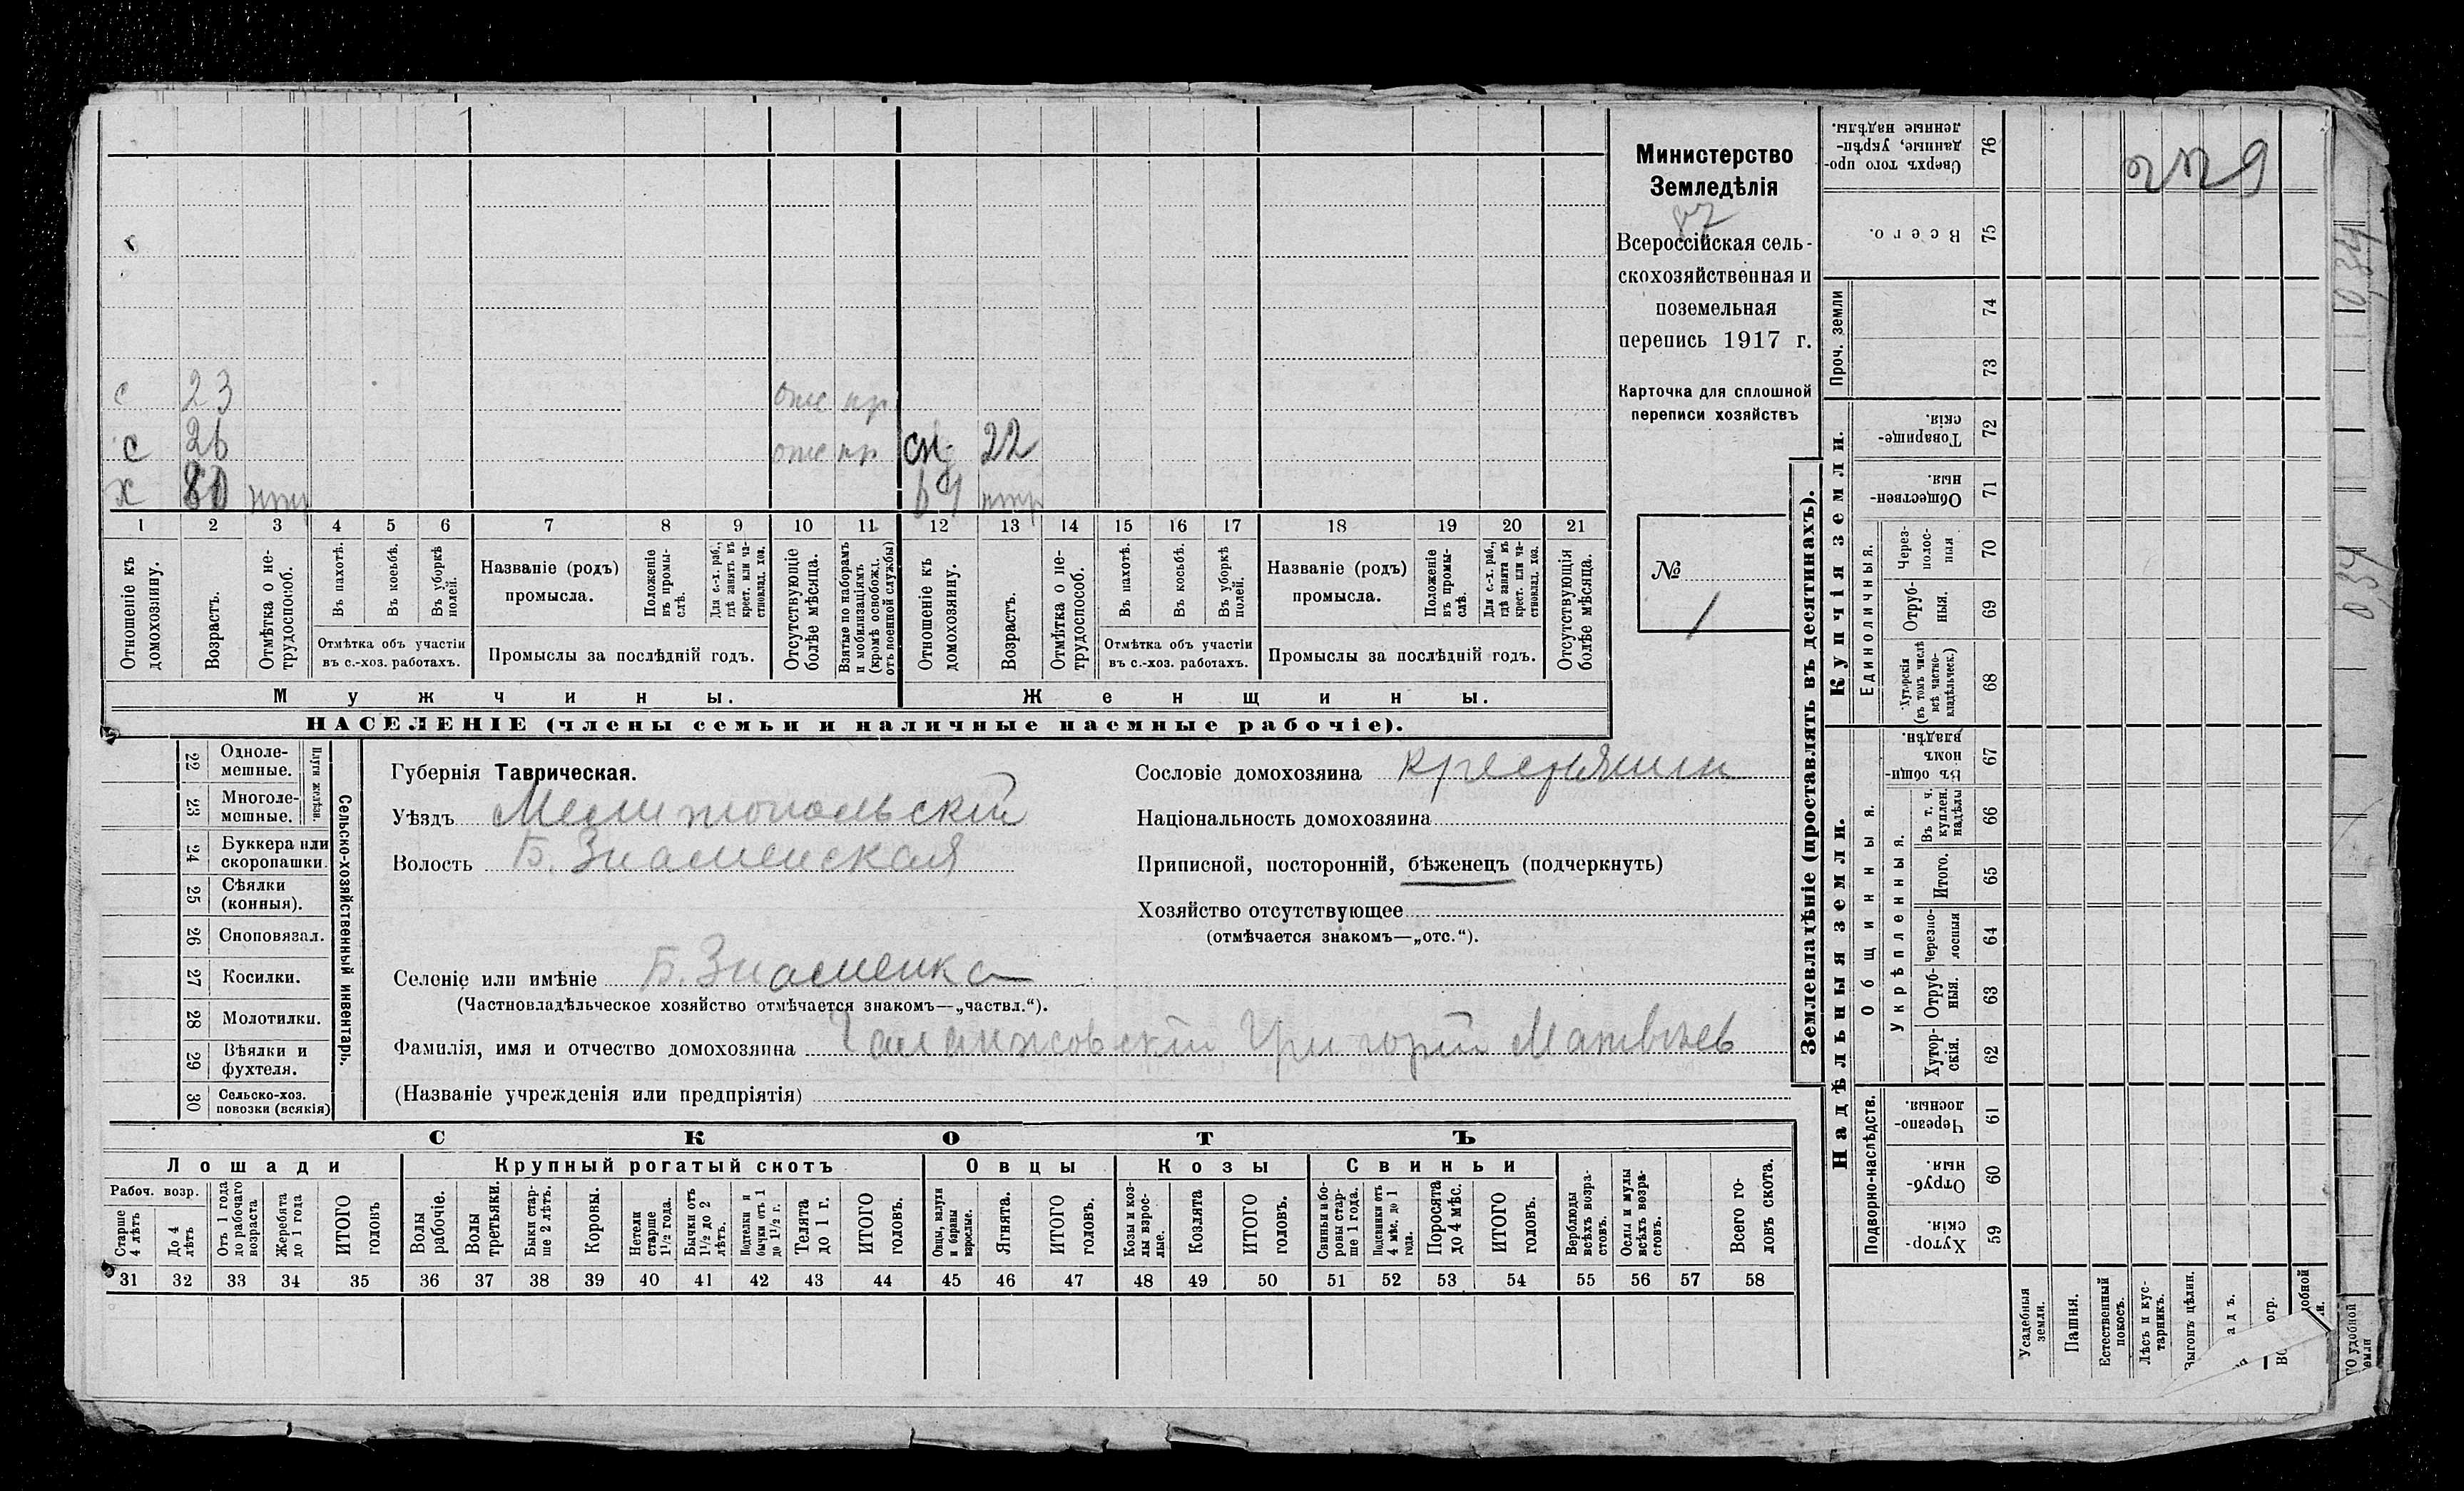 Министерство
Земледѣлія
Всероссійская сель-
скохозяйственная и
поземельная
перепись 1917 г.
Карточка для сплошной
переписи хозяйствъ
№
1
с 23 отс пр
с 26 отс пр сн 22
х 80
1 2 3 4 5 6 7 8 9 10 11 12 13 14 15 16 17 18 19 20 21
Отношеніе къ домохозяину.
Возрастъ.
Отмѣтка о не-трудоспособ.
Въ пахотѣ.
Въ косьбѣ.
Въ уборкѣ полей.
Отмѣтка объ участіи
въ с.-хоз. работахъ.
Названіе (родъ)
промысла.
Положеніе въ промы-слѣ.
Для с.-х. раб., гдѣ занятъ въ крест. или ча-стновлад. хоз.
Промыслы за послѣдній годъ.
Отсутствующіе болѣе мѣсяца.
Взятые по наборамъ и мобилизаціямъ (кромѣ освобожд. отъ военной службы)
Отношеніе къ домохозяину.
Возрастъ.
Отмѣтка о не-трудоспособ.
Въ пахотѣ.
Въ косьбѣ.
Въ уборкѣ полей.
Отмѣтка объ участіи
въ с.-хоз. работахъ.
Названіе (родъ)
промысла.
Положеніе въ промы-слѣ.
Для с.-х. раб., гдѣ занята въ крест. или ча-стновлад. хоз.
Промыслы за послѣдній годъ.
Отсутствующія болѣе мѣсяца.
Мужчины.
Женщины.
НАСЕЛЕНІЕ (члены семьи и наличные наемные рабочіе).
22 Однолемешные.
23 Многолемешные.
Плуги желѣзн.
24 Буккера или скоропашки.
25 Сѣялки (конныя).
26 Сноповязал.
27 Косилки.
28 Молотилки.
29 Вѣялки и фухтеля.
30 Сельско-хоз. повозки (всякія)
Сельско-хозяйственный инвентарь.
Губернія Таврическая.
Уѣздъ Мелитопольскій
Волость Б. Знаменская
Селеніе или имѣніе Б. Знаменка
(Частновладѣльческое хозяйство отмѣчается знакомъ—„частвл.“).
Фамилія, имя и отчество домохозяина Григорій Матвѣев
(Названіе учрежденія или предпріятія)
Сословіе домохозяина крестьянин
Національность домохозяина
Приписной, посторонній, бѣженецъ (подчеркнуть)
Хозяйство отсутствующее
(отмѣчается знакомъ—„отс.“).
СКОТЪ
Лошади
Крупный рогатый скотъ
Овцы
Козы
Свиньи
Рабоч. возр.
Старше 4 лѣтъ
До 4 лѣтъ
Отъ 1 года до рабочаго возраста
Жеребята до 1 года
ИТОГО головъ
Волы рабочіе.
Волы третьяки.
Быки стар-ше 2 лѣтъ.
Коровы.
Нетели старше 1½ года.
Бычки отъ 1½ до 2 лѣтъ.
Подтелки и бычки отъ 1 до 1½ г.
Телята до 1 г.
ИТОГО головъ.
Овцы, валухи и бараны взрослые.
Ягнята.
ИТОГО головъ.
Козы и коз-лы взрос-лые.
Козлята
ИТОГО головъ.
Свиньи и бо-ровы стар-ше 1 года.
Подсвинки отъ 4 мѣс. до 1 года.
Поросята до 4 мѣс.
ИТОГО головъ.
Верблюды всѣхъ возра-стовъ.
Ослы и мулы всѣхъ возра-стовъ.
Всего го-ловъ скота.
31 32 33 34 35 36 37 38 39 40 41 42 43 44 45 46 47 48 49 50 51 52 53 54 55 56 57 58
Землевладѣніе (проставлять въ десятинахъ).
Надѣльныя земли.
Купчія земли.
Проч. земли
Подворно-наслѣдств.
Общинныя.
Укрѣпленныя.
Единоличныя.
Сверхъ того про-данные, укрѣп-ленные надѣлы. 76
Всего. 75
74
73
Товарище-скія. 72
Обществен-ныя. 71
Через-полос-ныя 70
Отруб-ныя. 69
Хуторскія (въ томъ числѣ всѣ частно-владѣльческ.) 68
Въ общин-номъ владѣн. 67
Въ т. ч. куплен. надѣлы 66
Итого. 65
Черезпо-лосныя 64
Отруб-ныя. 63
Хутор-скія. 62
Черезпо-лосныя. 61
Отруб-ныя. 60
Хутор-скія. 59
Усадебныя земли.
Пашня.
Естественный покосъ.
Лѣсъ и кус-тарникъ.
Выгонъ цѣлин.
1034
034